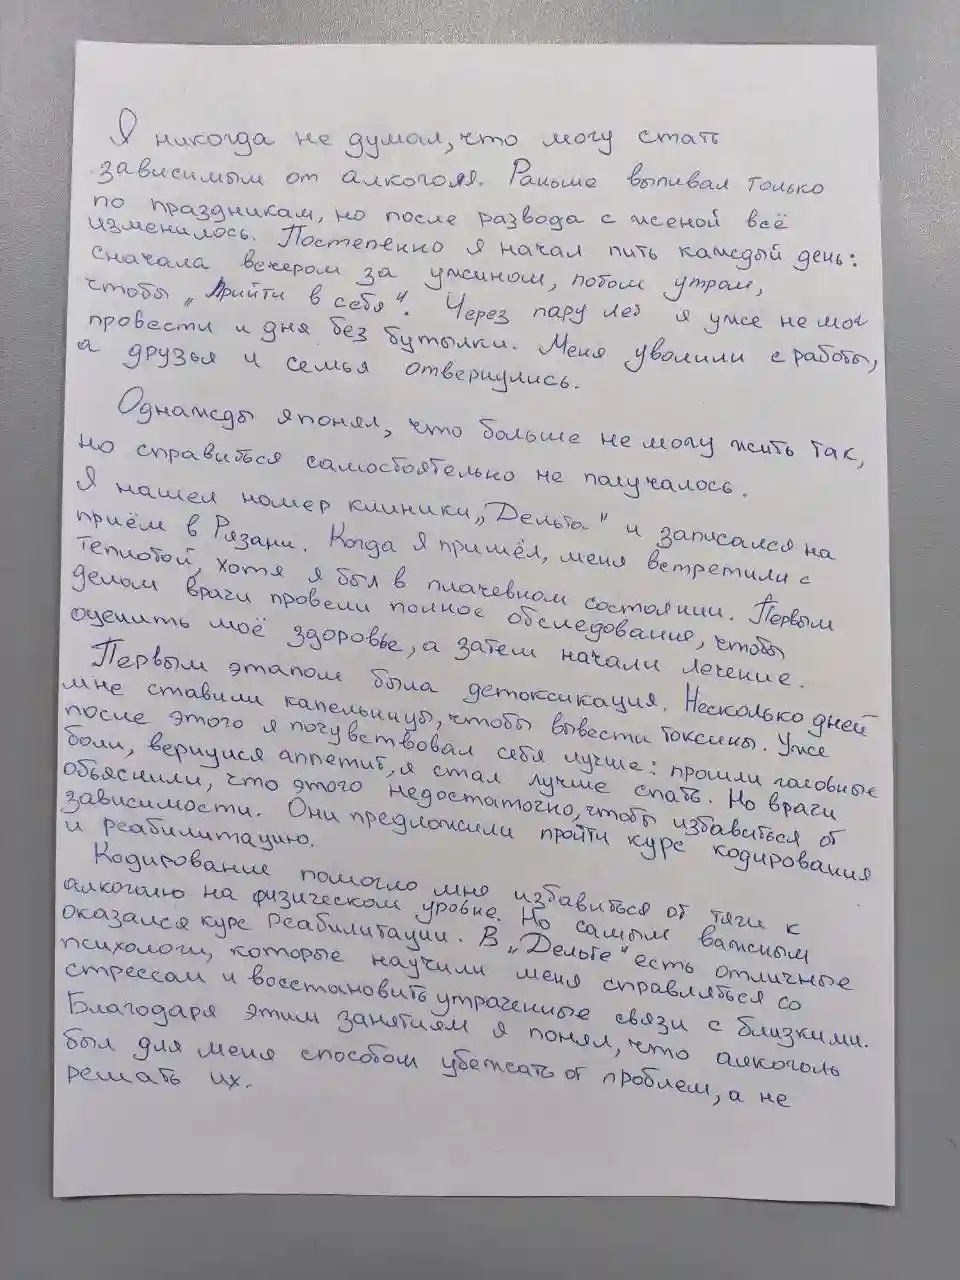 Я никогда не думал, что могу стать
зависимым от алкоголя. Раньше выпивал только
по праздникам, но после развода с женой всё
изменилось. Постепенно я начал пить каждый день:
сначала вечером за ужином, потом утром,
чтобы „прийти в себя". Через пару лет я уже не мог
провести и дня без бутылки. Меня уволили с работы,
а друзья и семья отвернулись.
Однажды я понял, что больше не могу жить так,
но справиться самостоятельно не получалось.
Я нашел номер клиники „Дельта" и записался на
приём в Рязани. Когда я пришёл, меня встретили с
теплотой, хотя я был в плачевном состоянии. Первым
делом врачи провели полное обследование, чтобы
оценить моё здоровье, а затем начали лечение.
Первым этапом была детоксикация. Несколько дней
мне ставили капельницы, чтобы вывести токсины. Уже
после этого я почувствовал себя лучше: прошли головные
боли, вернулся аппетит, я стал лучше спать. Но врачи
объяснили, что этого недостаточно, чтобы избавиться от
зависимости. Они предложили пройти курс кодирования
и реабилитацию.
Кодирование помогло мне избавиться от тяги к
алкоголю на физическом уровне. Но самым важным
оказался курс реабилитации. В „Дельте" есть отличные
психологи, которые научили меня справляться со
стрессом и восстановить утраченные связи с близкими.
Благодаря этим занятиям я понял, что алкоголь
был для меня способом убежать от проблем, а не
решать их.